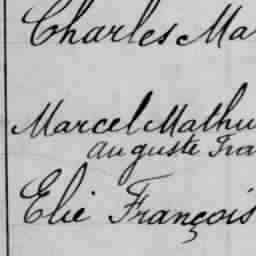 Charles Ma
Marcel Mathu
auguste Fra
Elie François